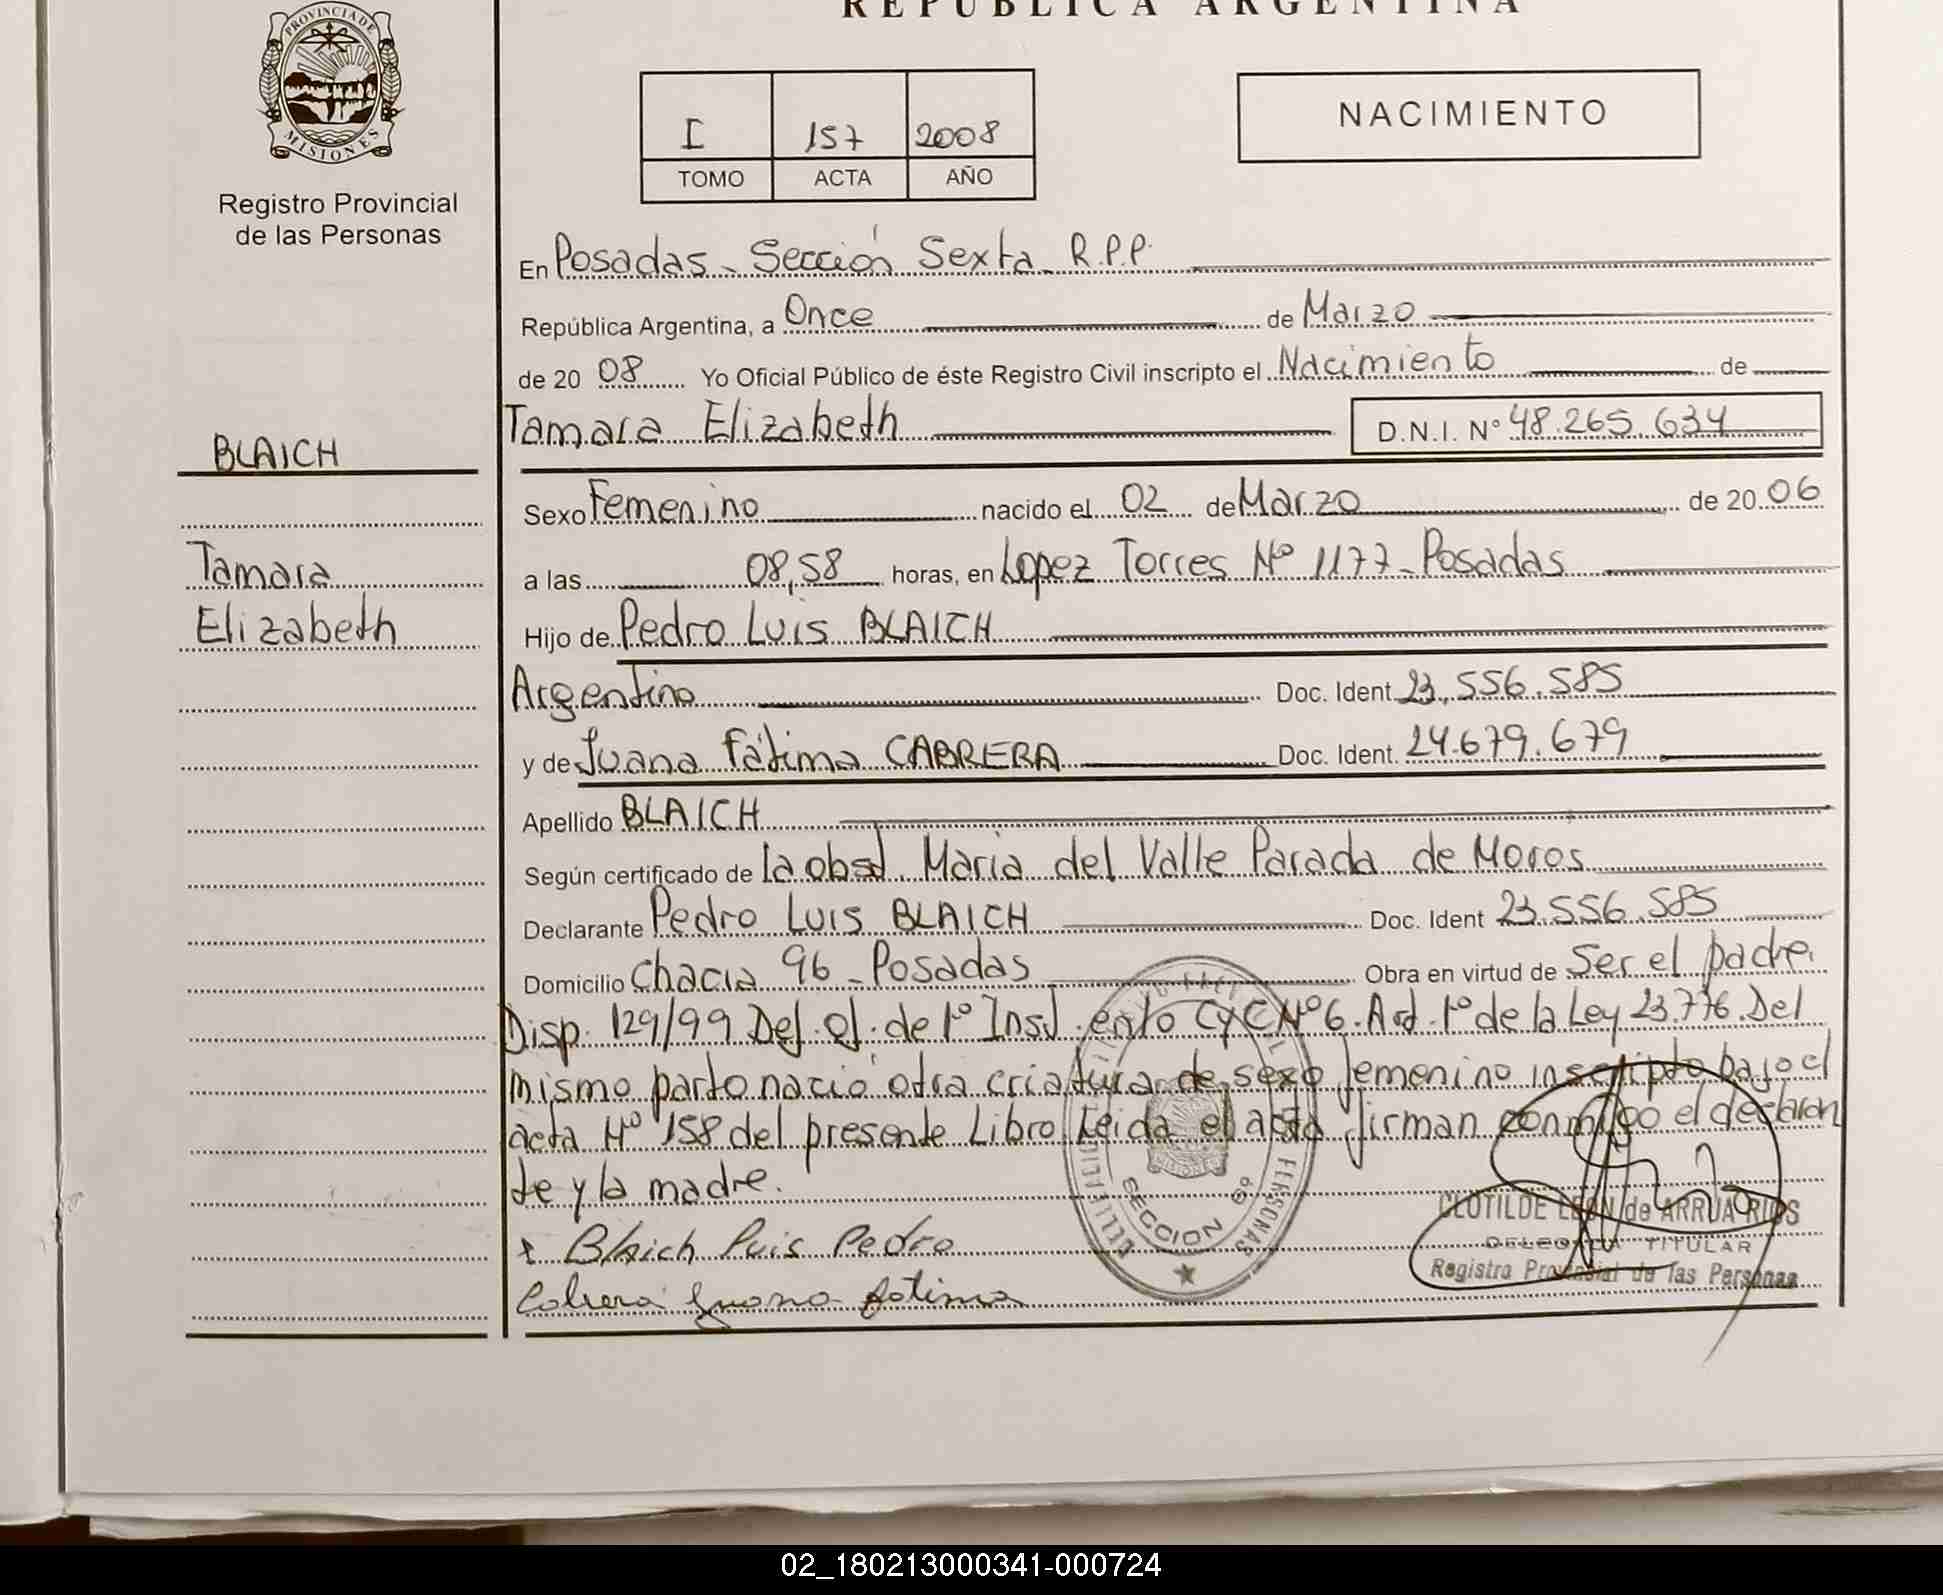 REPUBLICA ARGENTINA
PROVINCIA DE
MISIONES
Registro Provincial
de las Personas
I 157 2008
TOMO ACTA AÑO
NACIMIENTO
En Posadas - Sección Sexta - R.P.P.
República Argentina, a Once de Marzo
de 20 08 Yo Oficial Público de éste Registro Civil inscripto el Nacimiento de
Tamara Elizabeth D.N.I. N° 48.265.634
BLAICH
Tamara
Elizabeth
Sexo Femenino nacido el 02 de Marzo de 20 06
a las 08,58 horas, en Lopez Torres Nº 1177 - Posadas
Hijo de Pedro Luis BLAICH
Argentino Doc. Ident 23.556.585
y de Juana Fátima CABRERA Doc. Ident. 24.679.679
Apellido BLAICH
Según certificado de la obst. Maria del Valle Parada de Moros
Declarante Pedro Luis BLAICH Doc. Ident 23.556.585
Domicilio Chacra 96 - Posadas Obra en virtud de Ser el padre.
Disp. 129/99 Def. Of. de 1º Inst. CyC Nº 6. Art. 1º de la Ley 23.776. Del
mismo parto nació otra criatura de sexo femenino inscripto bajo el
acta Nº 158 del presente Libro Leida el acta firman conmigo el declaran
te y la madre.
x Blaich Luis Pedro
Cabrera Juana Fatima
SECCION 6º
PERSONAS
CLOTILDE LEON de ARRUA RIOS
DELEGADA TITULAR
Registro Provincial de las Personas
02_180213000341-000724